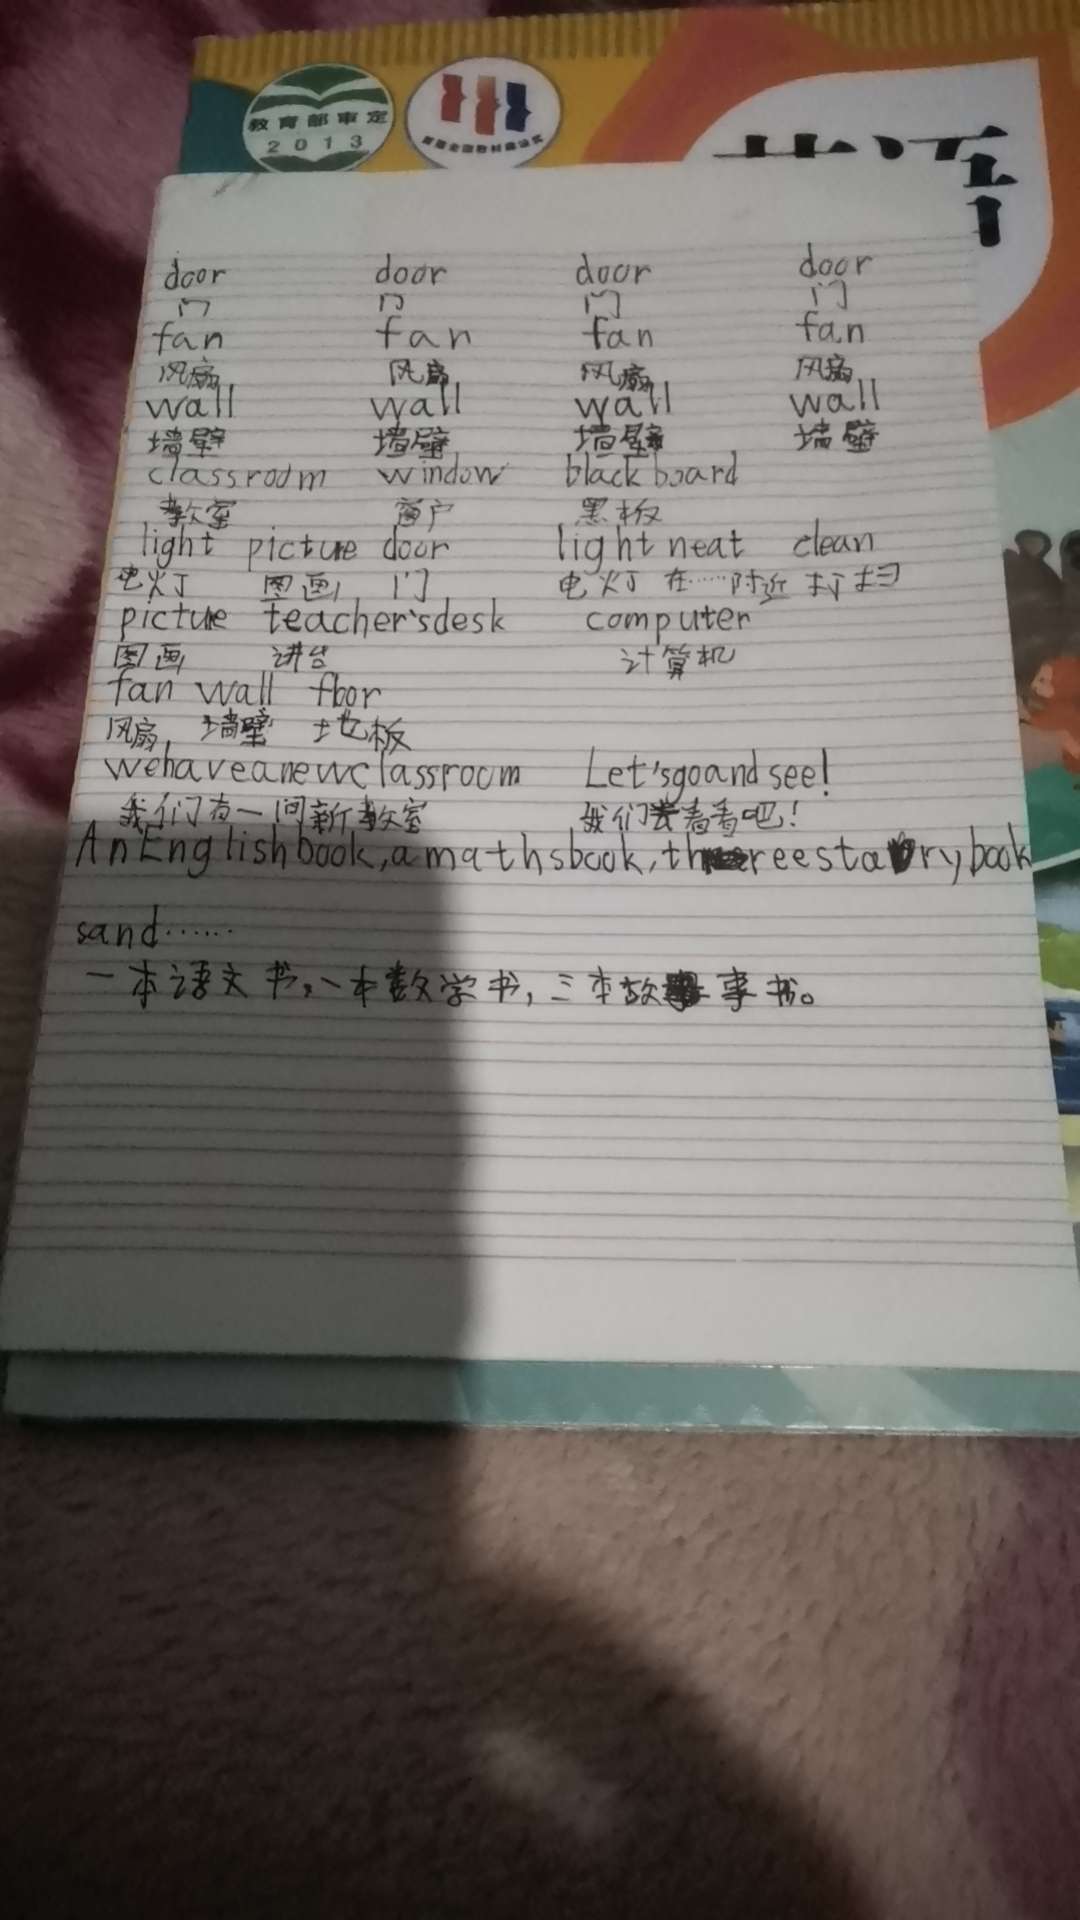 教育部审定
2013
英语
door door door door
门 门 门 门
fan fan fan fan
风扇 风扇 风扇 风扇
wall wall wall wall
墙壁 墙壁 墙壁 墙壁
classroom window blackboard
教室 窗户 黑板
light picture door light neat clean
电灯 图画 门 电灯 在……附近 打扫
picture teacher'sdesk computer
图画 讲台 计算机
fan wall floor
风扇 墙壁 地板
wehaveanewclassroom Let'sgoandsee!
我们有一间新教室 我们去看看吧!
AnEnglishbook,amathsbook,threestorybook
sand……
一本语文书,一本数学书,三本故事书。